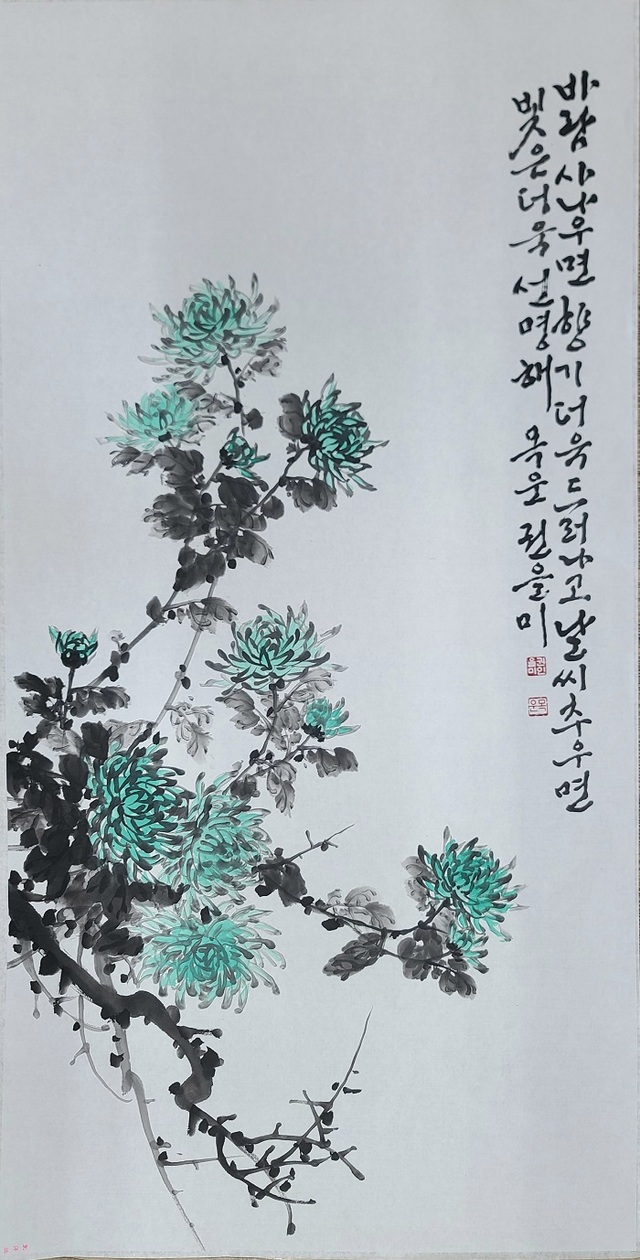 바람 사나우면 향기 더욱 드러나고 날씨 추우면
빛은 더욱 선명해 옥운 권을미